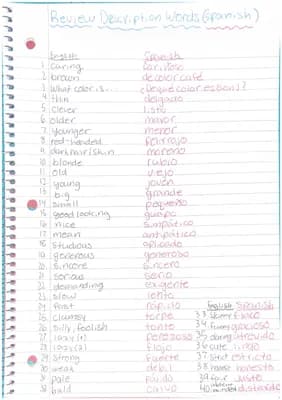 Review Description Words (Spanish)
English Spanish
1 caring cariñoso
2 brown de color café
3 What color is... ¿De qué color es (son)?
4 thin delgado
5 clever listo
6 older mayor
7 younger menor
8 red-headed pelirrojo
9 dark hair/skin moreno
10 blonde rubio
11 old viejo
12 young joven
13 big grande
14 small pequeño
15 good looking guapo
16 nice simpático
17 mean antipático
18 studious aplicado
19 generous generoso
20 sincere sincero
21 serious serio
22 demanding exigente
23 slow lento
24 fast rápido
25 clumsy torpe
26 silly, foolish tonto
27 lazy (1) perezoso
28 lazy (2) flojo
29 strong fuerte
30 weak débil
31 pale pálido
32 bald calvo
English Spanish
33 skinny flaco
34 funny gracioso
35 daring atrevido
36 cute lindo
37 strict estricto
38 honest honesto
39 fair justo
40 distraído